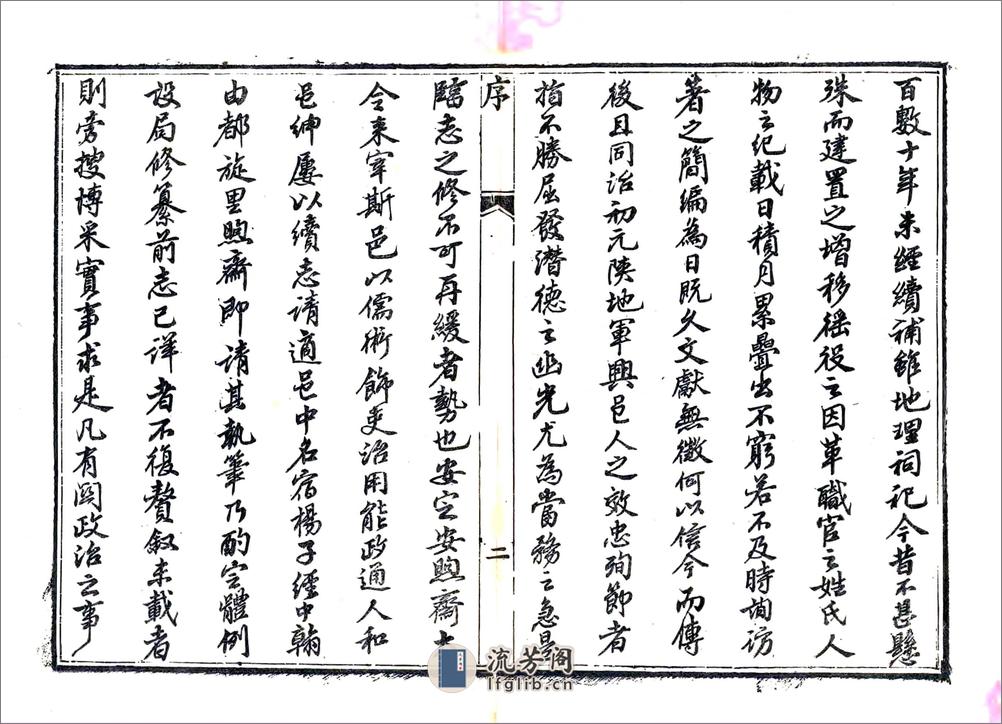 百數十年未經續補雖地理祠祀今昔不甚懸
殊而建置之增移徭役之因革職官之姓氏人
物之紀載日積月累疊出不窮若不及時詢訪
著之簡編為日旣久文獻無徵何以信今而傳
後且同治初元陝地軍興邑人之效忠殉節者
指不勝屈發潛德之幽光尤為當務之急是
序
二
臨志之修不可再緩者勢也安定安煦齋大
令來宰斯邑以儒術飾吏治用能政通人和
邑紳屢以續志請適邑中名宿楊子經中翰
由都旋里煦齋即請其執筆乃酌定體例
設局修纂前志已詳者不復贅叙未載者
則旁搜博采實事求是凡有關政治之事
流芳阁
lfglib.cn